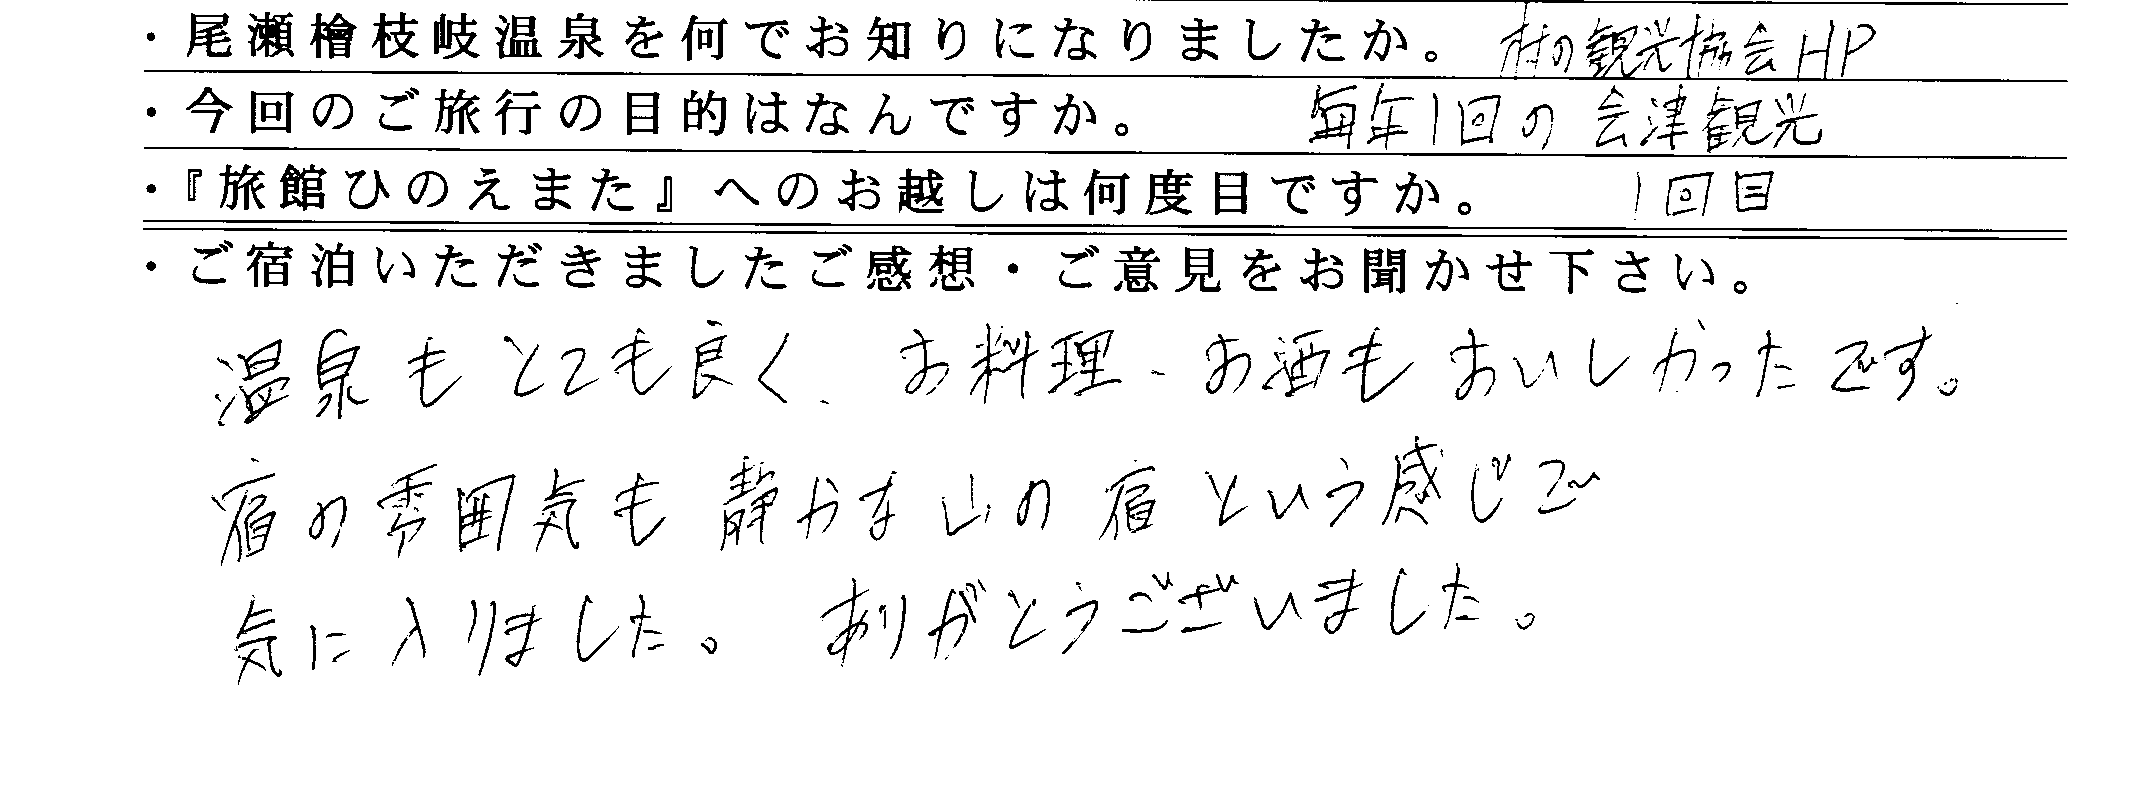 ・尾瀬檜枝岐温泉を何でお知りになりましたか。 村の観光協会HP
・今回のご旅行の目的はなんですか。 毎年1回の会津観光
・『旅館ひのえまた』へのお越しは何度目ですか。 1回目
・ご宿泊いただきましたご感想・ご意見をお聞かせ下さい。
温泉もとても良く、お料理、お酒もおいしかったです。
宿の雰囲気も静かな山の宿という感じで
気に入りました。ありがとうございました。